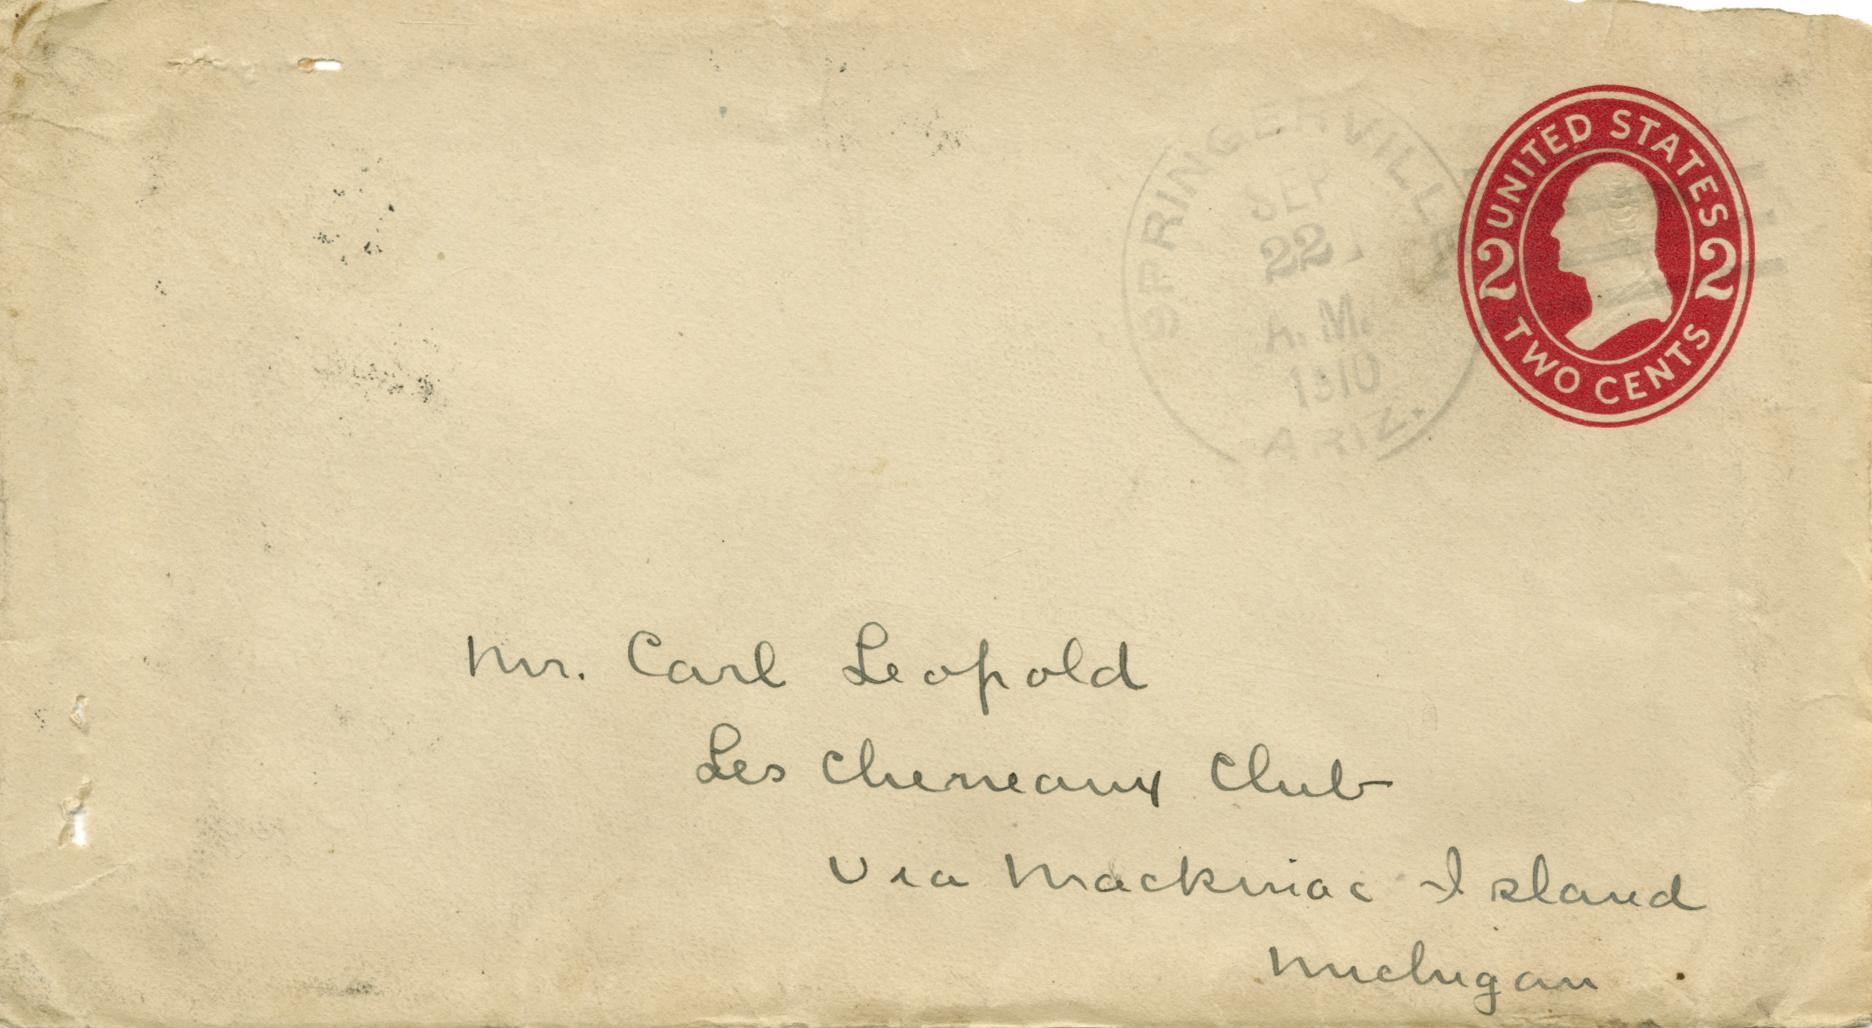 SPRINGERVILLE
SEP
22
A. M.
1910
ARIZ.
UNITED STATES
2 2
TWO CENTS
Mr. Carl Leopold
Les Cheneaux Club
Via Mackinac Island
Michigan